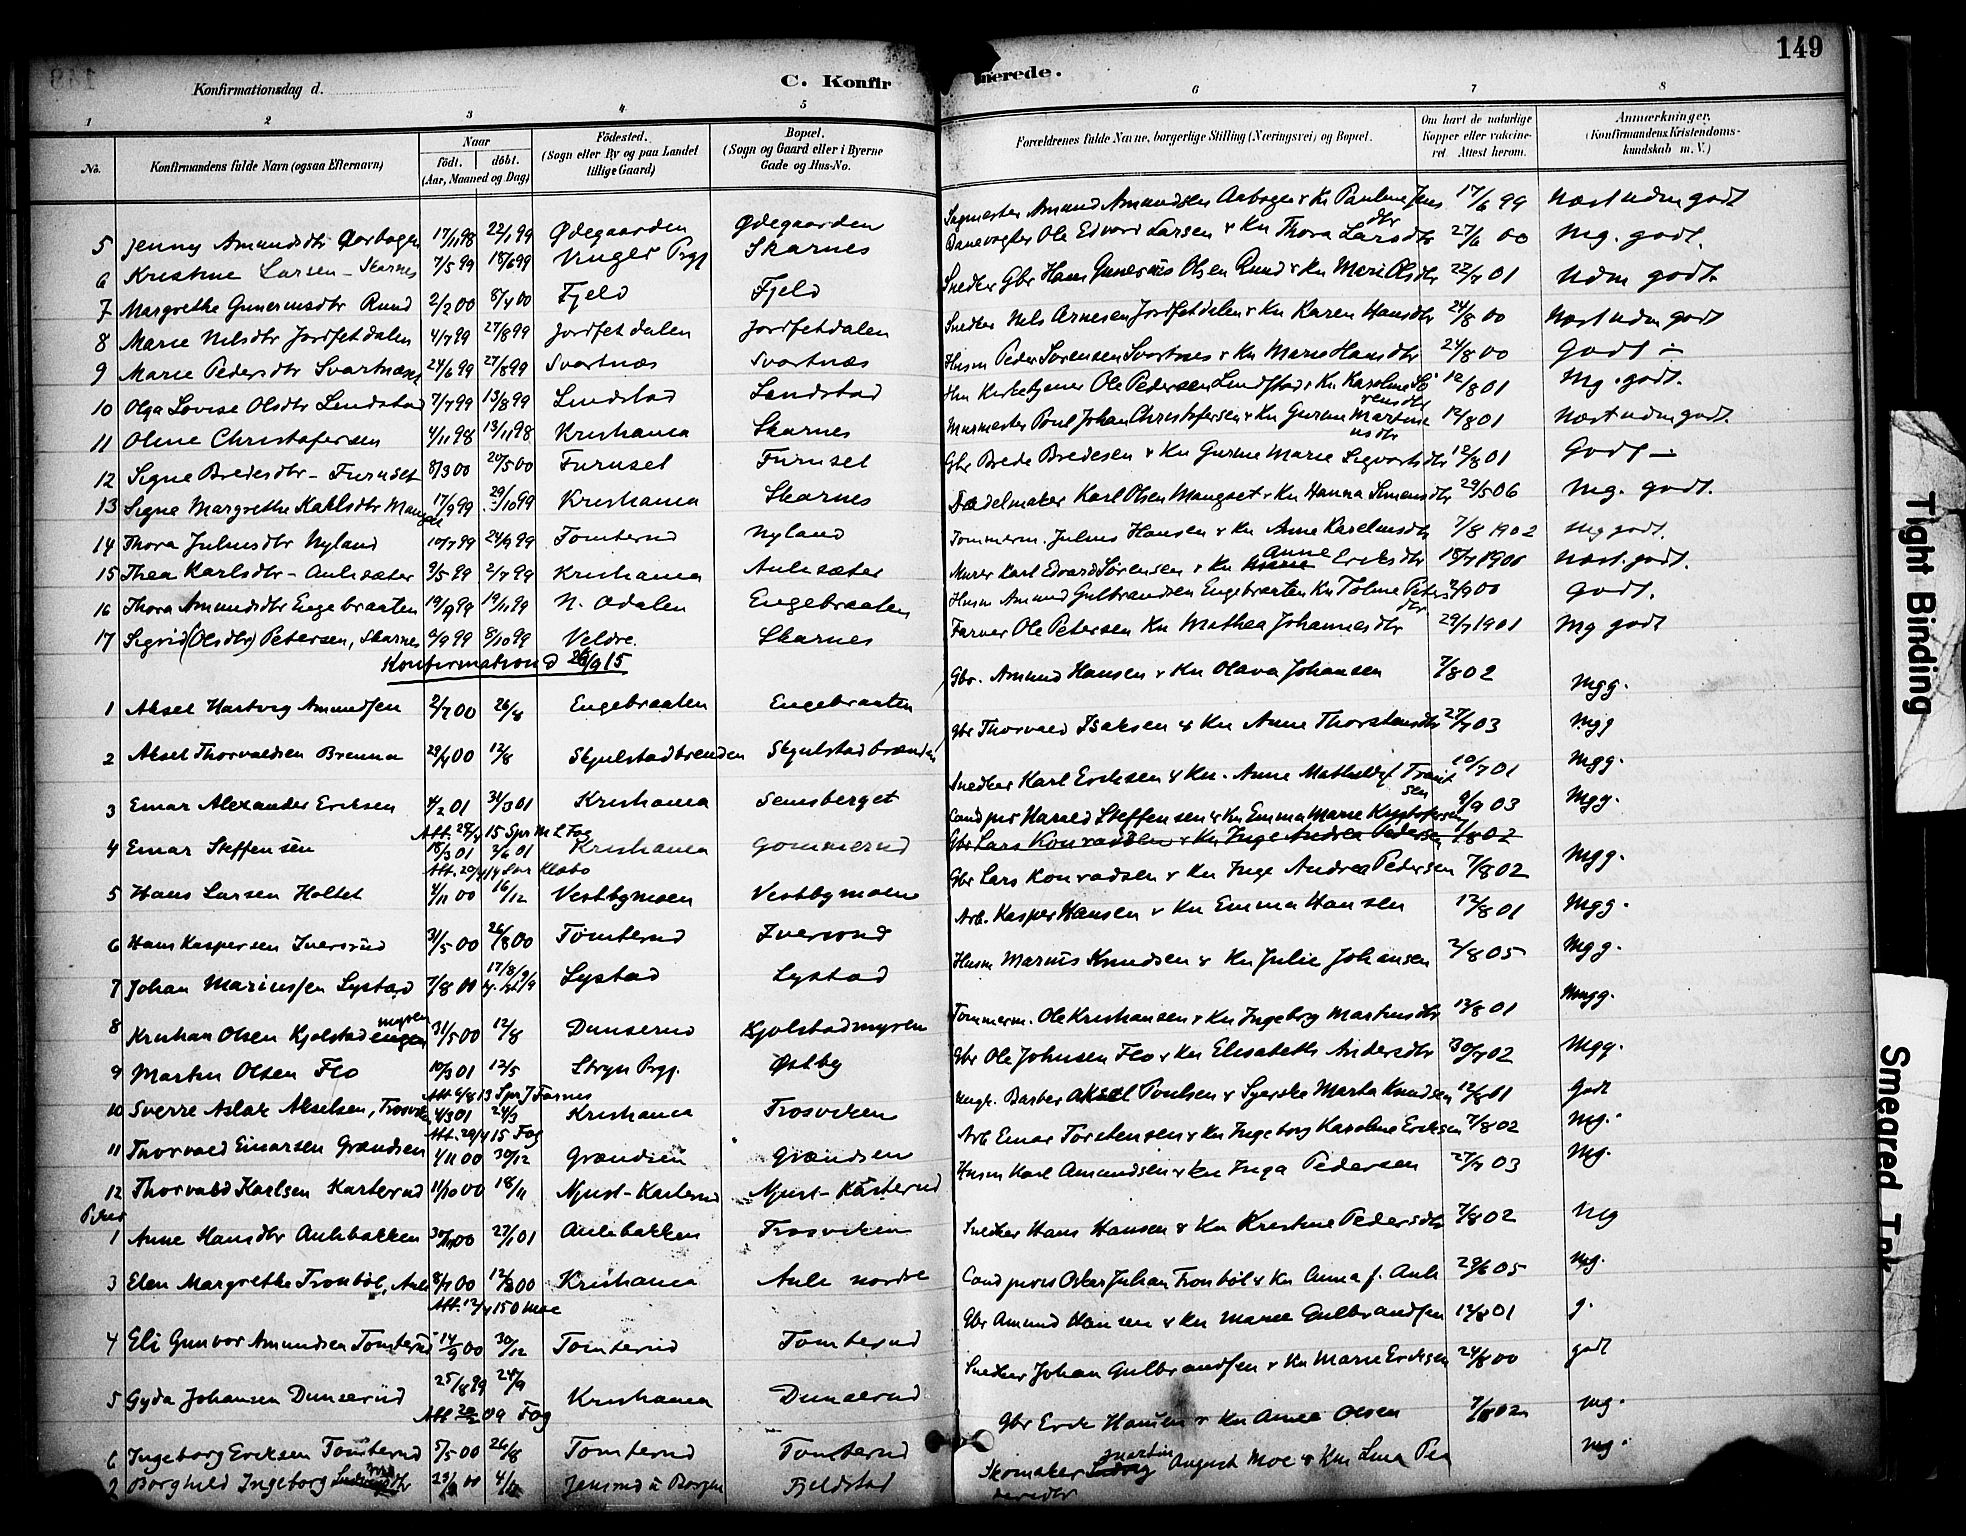 149
Konfirmationsdag d.
C. Konfir
merede.
1 2 3 4 5 6 7 8
No.
Konfirmandens fulde Navn (ogsaa Efternavn)
Naar
födt. döbt.
(Aar, Maaned og Dag)
Födested.
(Sogn eller By og paa Landet
tillige Gaard)
Bopæl.
(Sogn og Gaard eller i Byerne
Gade og Hus-No.
Forældrenes fulde Navne, borgerlige Stilling (Næringsvei) og Bopæl.
Om havt de naturlige
Kopper eller vaccine-
ret Attest herom.
Anmærkninger.
(Konfirmandens Kristendoms-
kundskab m. V.)
5 Jenny Amundsdtr Aarbogen 17/11 98 22/1 99 Ødegaarden Ødegaarden Sagmester Amund Amundsen Aarbogen & Kn Pauline Jens dtr 17/6 99 Næst udm godt
6 Kristine Larsen - Skarnes 7/5 99 18/6 99 Vinger Prgj Skarnes Banevogter Ole Edvard Larsen & Kn Thora Larsdtr 27/6 00 Mg. godt.
7 Margrethe Gunerinsdtr Rund 2/2 00 8/4 00 Fjeld Fjeld Snedker Gbr Hans Gunerius Olsen Rund & Kn Meri Olsdtr 22/7 01 Udm godt
8 Marie Nilsdtr Jordfetdalen 4/7 99 27/8 99 Jordfetdalen Jordfetdalen Snedker Nils Arnesen Jordfetdalen & Kn Karen Hansdtr 24/8 00 Næst udm godt
9 Marie Pedersdtr Svartnæs 24/6 99 27/8 99 Svartnæs Svartnæs Husm Peder Sørensen Svartnæs & Kn Marie Hansdtr 24/8 00 Godt ÷
10 Olga Lovise Olsdtr Lindstad 7/7 99 13/8 99 Lindstad Lindstad Hm Kirketjener Ole Pedersen Lindstad & Kn Karoline Sö rensdtr 12/8 01 Mg. godt.
11 Oline Christofersen 4/11 98 13/11 98 Kristiania Skarnes Murmester Poul Johan Christofersen & Kn Gurine Martin usdtr 12/8 01 Næst udm godt.
12 Signe Bredesdtr - Furuset 8/3 00 20/5 00 Furuset Furuset Gbr Brede Bredesen & Kn Gurine Marie Sigvartsdtr 12/8 01 Godt ÷
13 Signe Margrethe Karlsdtr Mangset 17/9 99 29/10 99 Kristiania Skarnes Karl Olsen Mangset & Kn Hanna Simensdtr 29/5 06 Mg. godt.
14 Thora Juliusdtr Nyland 10/7 99 24/9 99 Tomterud Nyland Tommerm. Julius Hansen & Kn Anne Karelinsdtr 7/8 1902 Mg godt.
15 Thea Karlsdtr - Aulisæter 9/5 99 2/7 99 Kristiania Aulisæter Murer Karl Edvard Sørensen & Kn Anne Eriksdtr 18/7 1900 Næst. godt.
16 Thora Amundsdtr Engebraaten 19/9 99 19/11 99 N. Odalen Engebraaten Husm Amund Gulbrandsen Engebraaten Kn Toline Peters dtr 2/9 00 godt.
17 Sigrid (Olsdtr) Petersen, Skarnes 9/9 99 8/10 99 Veldre. Skarnes Farver Ole Petersen Kn Mathea Johannesdtr 29/7 1901 Mg godt
Konfirmation d 26/9 15
1 Aksel Hartvig Amundsen 2/7 00 26/8 Engebraaten Engebraaten Gbr. Amund Hansen & Kn Olava Johansen 7/8 02 Mgg.
2 Aksel Thorvaldsen Brenna 29/4 00 12/8 Skjulstadbrenden Skjulstadbrænden Gbr Thorvald Isaksen & Kn Anne Thorstensdtr 27/7 03 Mgg
3 Einar Alexander Eriksen 4/2 01 31/3 01 Kristiania Semsberget Snedker Karl Eriksen & Kn. Anne Mathilde Frant sen 10/7 01 Mgg.
4 Einar Steffensen 18/3 01 2/6 01 Kristiania Gommerud Cand phil Harald Steffensen & Kn Emma Marie Kristofersen 9/9 03 Mgg.
Gbr Lars Konradsen & Kn Inge Andrea Pedersen 7/8 02
5 Hans Larsen Holtet 4/11 00 16/12 Vestbymoen Vestbymoen Gbr Lars Konradsen & Kn Inge Andrea Pedersen 7/8 02 Mgg.
6 Hans Kaspersen Iversrud 31/5 00 26/8 00 Tomterud Iversrud Arb. Kasper Hansen & Kn Emma Hansen 12/8 01 Mgg.
7 Johan Mariussen Lystad 7/8 00 17/8 Lystad Lystad Husm Marius Knudsen & Kn Julie Johansen 2/8 05 Mgg.
8 Kristian Olsen Kjolstad myren 31/5 00 12/8 Dunserud Kjolstadmyren Tommerm. Ole Kristiansen & Kn Ingeborg Martinsdtr 12/8 01 Mgg.
9 Martin Olsen Flo 10/3 01 12/5 Stryn Prgj. Østby Gbr Ole Johnsen Flo & Kn Elisabeth Andersdtr 30/7 02 Mgg.
10 Sverre Aslak Akselsen, Trosviken 4/3 01 24/3 Kristiania Trosviken Ungk. Barber Aksel Poulsen & Syerske Marta Knudsen 12/8 01 Godt
11 Thorvald Einarsen Grændsen 4/11 00 30/12 Grændsen Grændsen Arb Einar Torstensen & Kn Ingeborg Karoline Eriksen 7/8 02 Mg.
12 Thorvald Karlsen Karterud 11/10 00 18/11 Njust-Karterud Njust-Karterud Husm Karl Amundsen & Kn Inga Pedersen 27/7 03 Mg.
Piker
1 Anne Hansdtr Aulibakken 30/11 00 27/1 01 Aulibakken Trosviken Snedker Hans Hansen & Kn Kristine Pedersdtr 7/8 02 Mg
3 Elen Margrethe Tronbøl, Auli 8/7 00 12/8 00 Kristiania Auli nordre Cand juris Oskar Julian Tronbøl & Kn Anna f. Auli 29/6 05 Mg.
4 Eli Gunvor Amundsen Tomterud 14/9 00 30/12 Tomterud Tomterud Gbr Amund Hansen & Kn Maree Gulbrandsen 12/8 01 g.
5 Gyda Johansen Dunserud 25/8 99 24/9 Kristiania Dunserud Snedker Johan Gulbrandsen & Kn Marie Eriksen 24/8 00 godt
6 Ingeborg Eriksen Tomterud 5/5 00 26/8 Tomterud Tomterud Gbr Erik Hansen & Kn Anne Olsen 7/8 02 Mg.
2 Borghild Ingeborg Jensrud i Borgen Fjeldstad Skomaker Martin August Moe & Kn Lina Pe deresdtr Mg.
Tight Binding
Smeared Ink